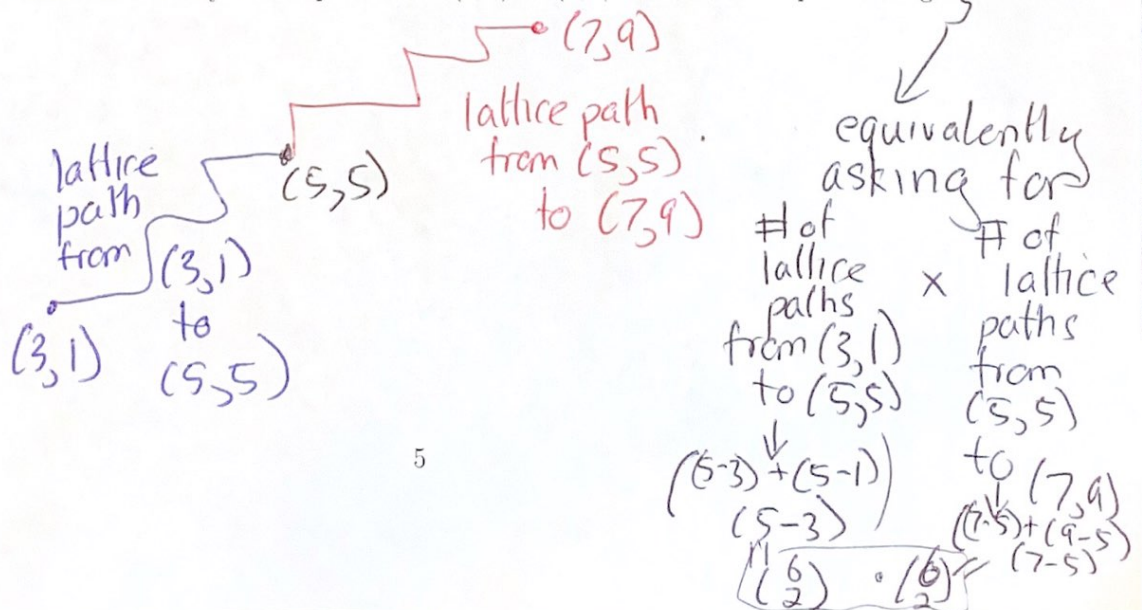 (7,9)
lattice path
from (5,5)
to (7,9)
lattice
path
from
(3,1)
to
(5,5)
(3,1)
(5,5)
equivalently
asking for
# of
lattice
paths
from (3,1)
to (5,5)
x
# of
lattice
paths
from
(5,5)
to (7,9)
((5-3)+(5-1))
(5-3)
((7-5)+(9-5)
(7-5)
(6
2) · (6
2)
5